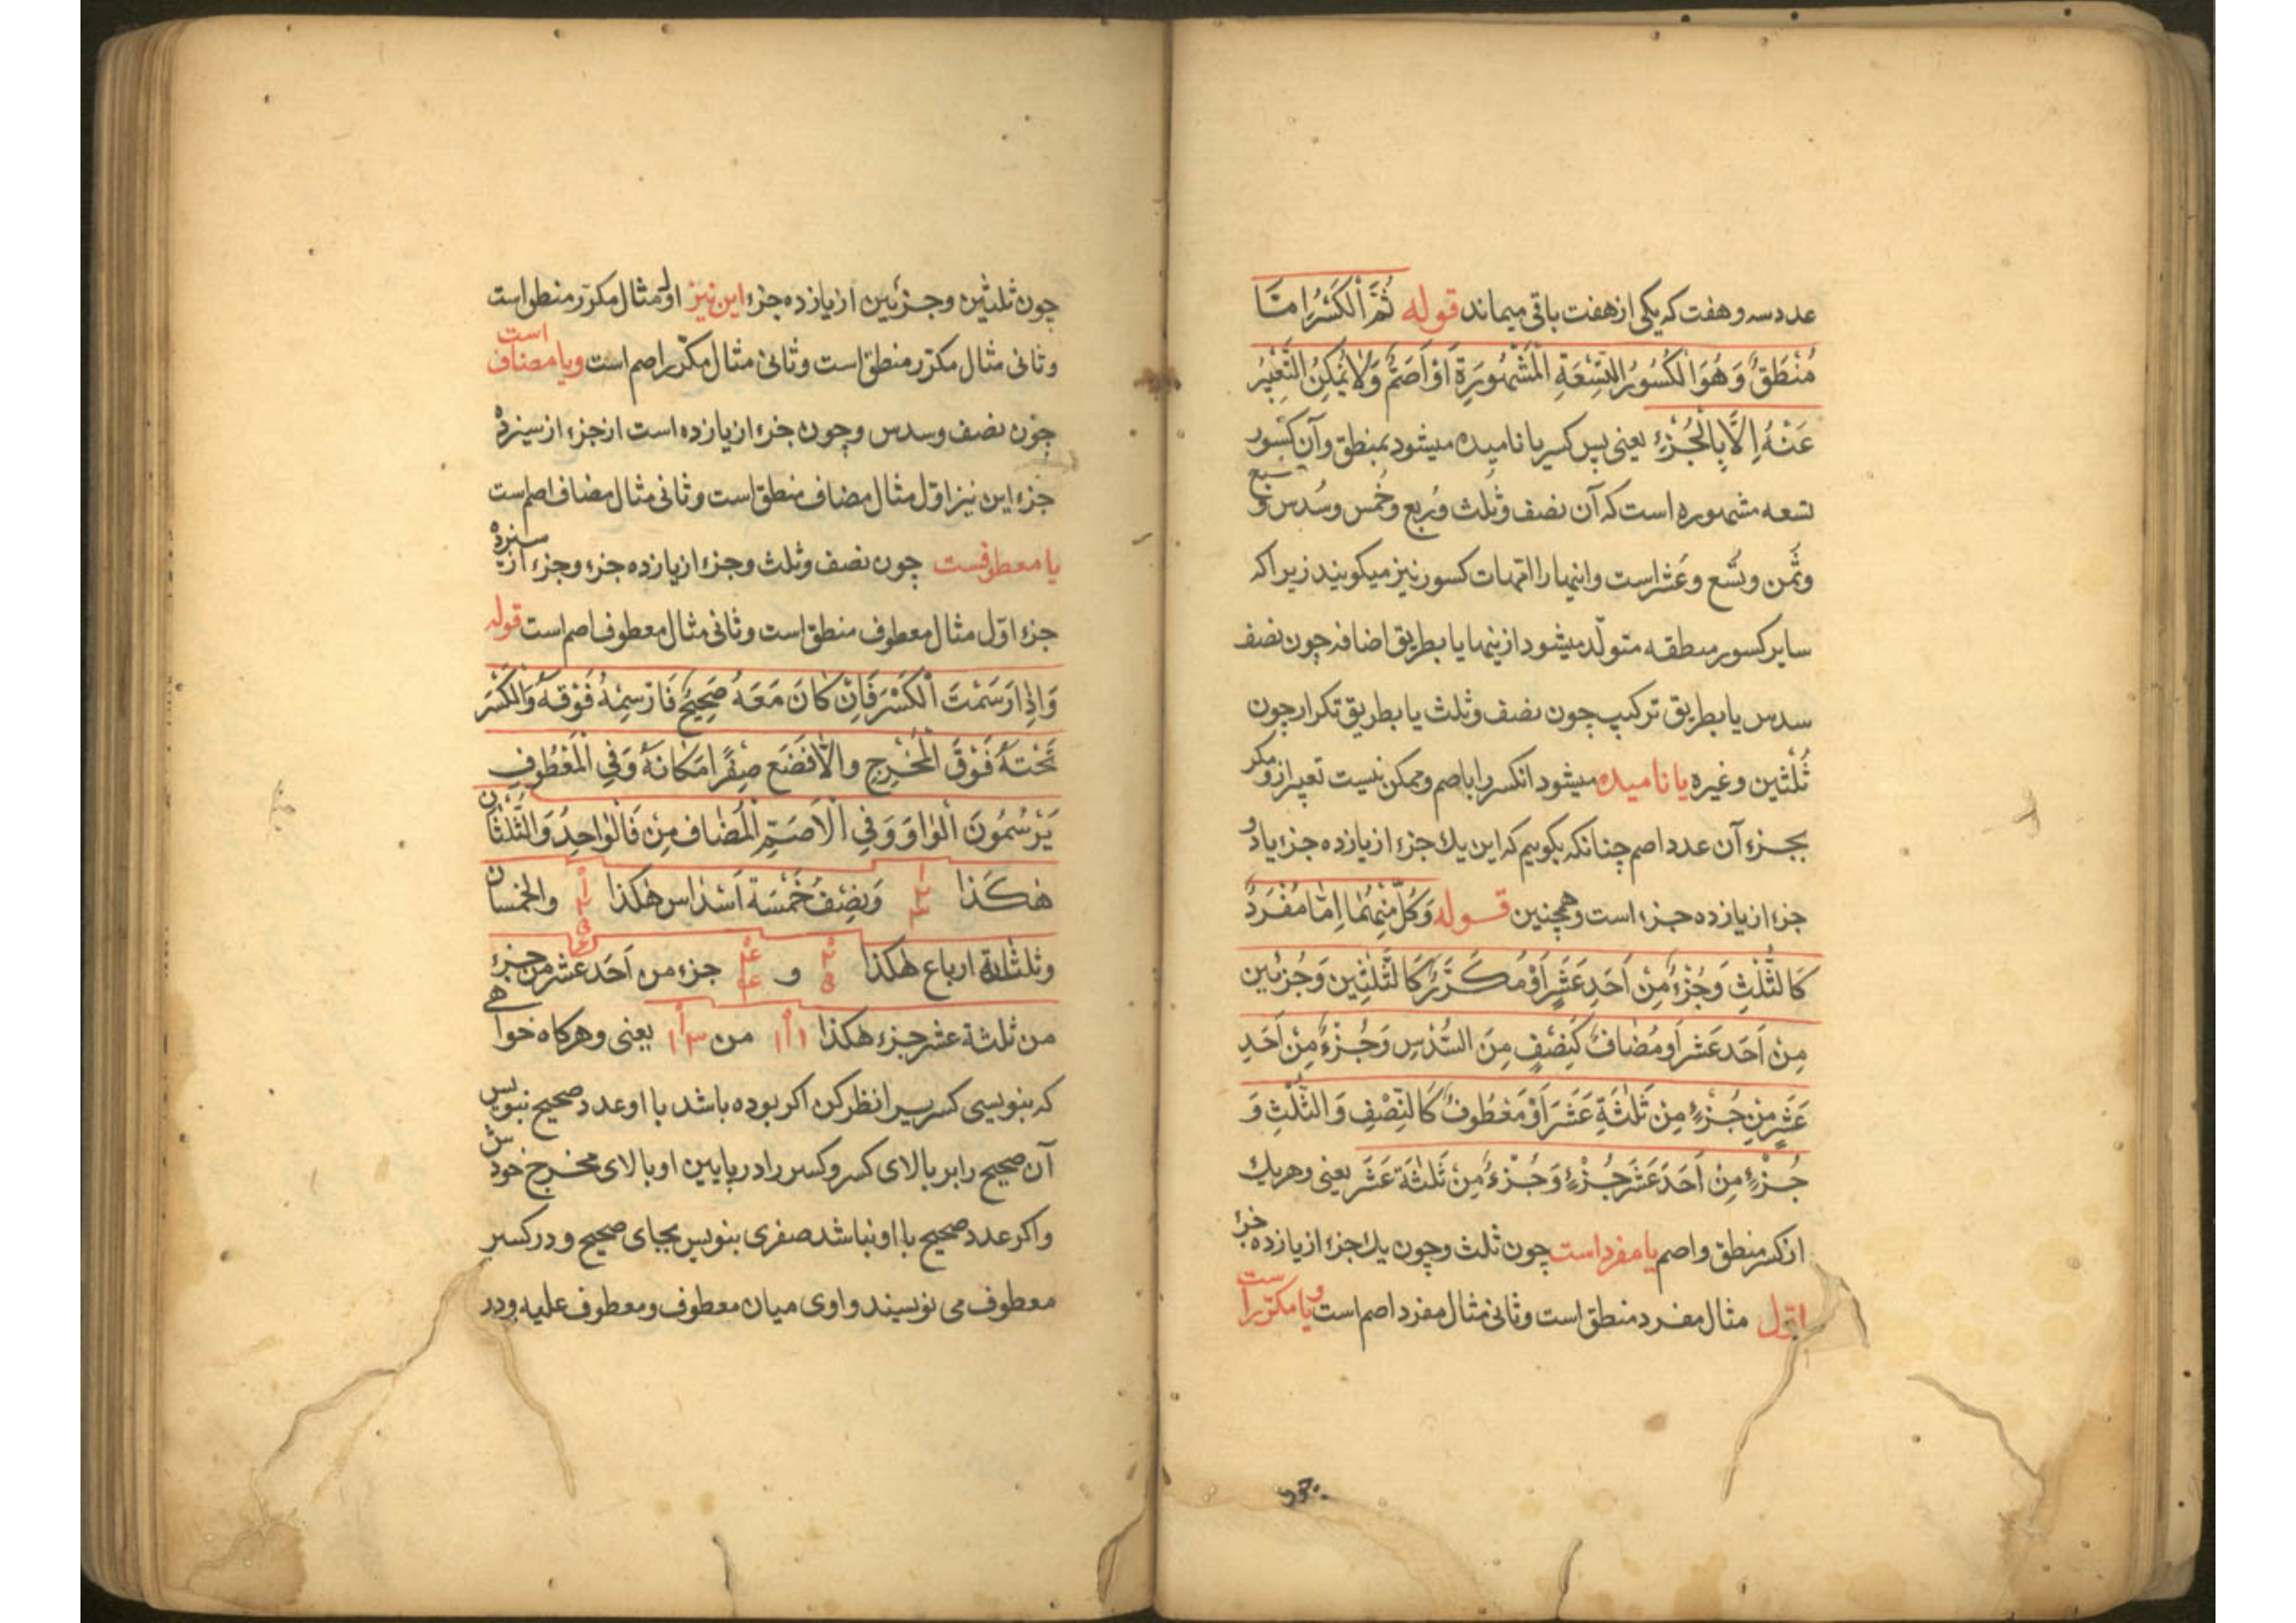 عدد سه و هفت که یکی از هفت باقی میماند قوله ثُمَّ الْکَسْرُ اِمَّا
مُنْطَقٌ وَهُوَ الْکُسُورُ التِّسْعَةِ الْمَشْهُورَةِ اَوْ اَصَمُّ وَلَا یُمْکِنُ التَّعْبِیْرُ
عَنْهُ اِلَّا بِالْجُزْءِ یعنی پس کسر یا نامیده میشود بمنطق و آن کسور
تسعه مشهوره است که آن نصف و ثلث و ربع و خُمس و سُدس و سبع
و ثُمن و تُسع و عَشر است و اینها را امهات کسور نیز میکویند زیرا که
سایر کسور منطقه متولّد میشود ازینها یا بطریق اضافه چون نصف
سدس یا بطریق ترکیب چون نصف و ثلث یا بطریق تکرار چون
ثُلثین و غیره یا نامیده میشود انکسر را باصم و ممکن نیست تعبیر ازو مکر
بجزء آن عدد اصم چنانکه بکوییم که این یك جزء از یازده جزء یا دو
جزء از یازده جزء است و همچنین قوله وَکُلٌّ مِنْهُمَا اِمَّا مُفْرَدٌ
کَالثُّلْثِ وَجُزْءٌ مِنْ اَحَدِ عَشَرٍ اَوْ مُکَرَّرٌ کَالثُّلْثَیْنِ وَجُزْئَیْنِ
مِنْ اَحَدَ عَشَرَ اَو مُضَافٌ کَنِصْفٍ مِنَ السُّدْسِ وَجُزْءٌ مِنْ اَحَدِ
عَشَرٍ مِنْ جُزْءٍ مِنْ ثَلٰثَةِ عَشَرَ اَوْ مَعْطُوفٌ کَالنِّصْفِ وَالثُّلْثِ وَ
جُزْءٍ مِنْ اَحَدَ عَشَرَ جُزْءٍ وَجُزْءٌ مِنْ ثَلٰثَةَ عَشَرَ یعنی و هر یك
از کسر منطق و اصم یا مفرد است چون ثلث و چون یك جزء از یازده جزء
اوّل مثال مفرد منطق است و ثانی مثال مفرد اصم است و یا مکرّر است
چون ثلثین و جزئین از یازده جزء این نیز اول مثال مکرّر منطق است
و ثانی مثال مکرّر منطق است و ثانی مثال مکرّر اصم است و یا مضاف است
چون نصف و سدس و چون جزء از یازده است از جزء از سیزده
جزء این نیز اوّل مثال مضاف منطق است و ثانی مثال مضاف اصم است
یا معطوفست چون نصف و ثلث و جزء از یازده جزء و جزء از سیزده
جزء اوّل مثال معطوف منطق است و ثانی مثال معطوف اصم است قوله
وَاِذَا رَسَمْتَ الْکَسْرَ فَاِنْ کَانَ مَعَهُ صَحِیْحٌ فَارْسِمْهُ فَوْقَهُ وَالْکَسْرَ
تَحْتَهُ فَوْقَ الْمَخْرَجِ وَاِلَّا فَضَعْ صِفْرًا مَکَانَهُ وَفِی الْمَعْطُوفِ
یَرْسُمُونَ الْوَاوَ وَفِی الْاَصَمِّ الْمُضَافِ مِنْ فَالْوَاحِدُ وَالثُّلْثَانِ
هٰکَذَا وَنِصْفُ خَمْسَةِ اَسْدَاسٍ هٰکَذَا والخمسان
وثلثة ارباع هٰکذا و جزء من اَحَد عشر من جزء
من ثلثة عشر جزء هٰکذا ۱۱ من ۱۳ یعنی و هرکاه خواهی
که بنویسی کسر پس انظر کن اکر بوده باشد با او عدد صحیح بنویس
آن صحیح را بر بالای کسر و کسر را در پایین او بالای مخرج خودش
و اکر عدد صحیح با او نباشد صفری بنویس بجای صحیح و در کسر
معطوف می نویسند واوی میان معطوف و معطوف علیه و در